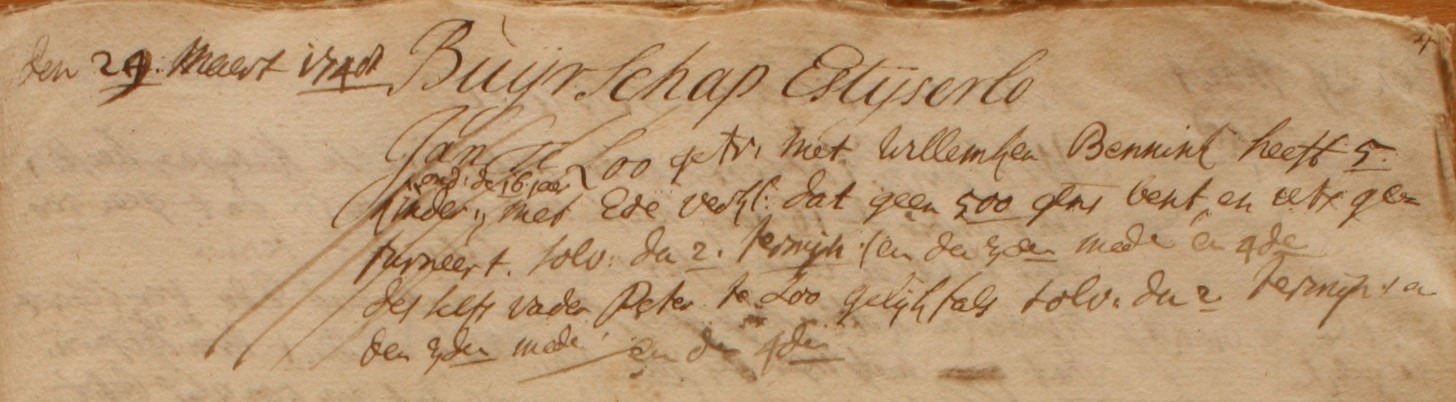 den 29. Maert 1748 Buijrschap Estijserlo 4
Jan te Loo getr. Met Willemken Bennink heeft 5.
ond. de 16 jaer
kinder, met Ede verkl. dat geen 500 gens bent en
turneert. solv. den 2. termijn (en den 3den mede en 4de
des selfs vader Peter te Loo gelijkfals solv. den 2 termijn en
den 3den mede en den 4den